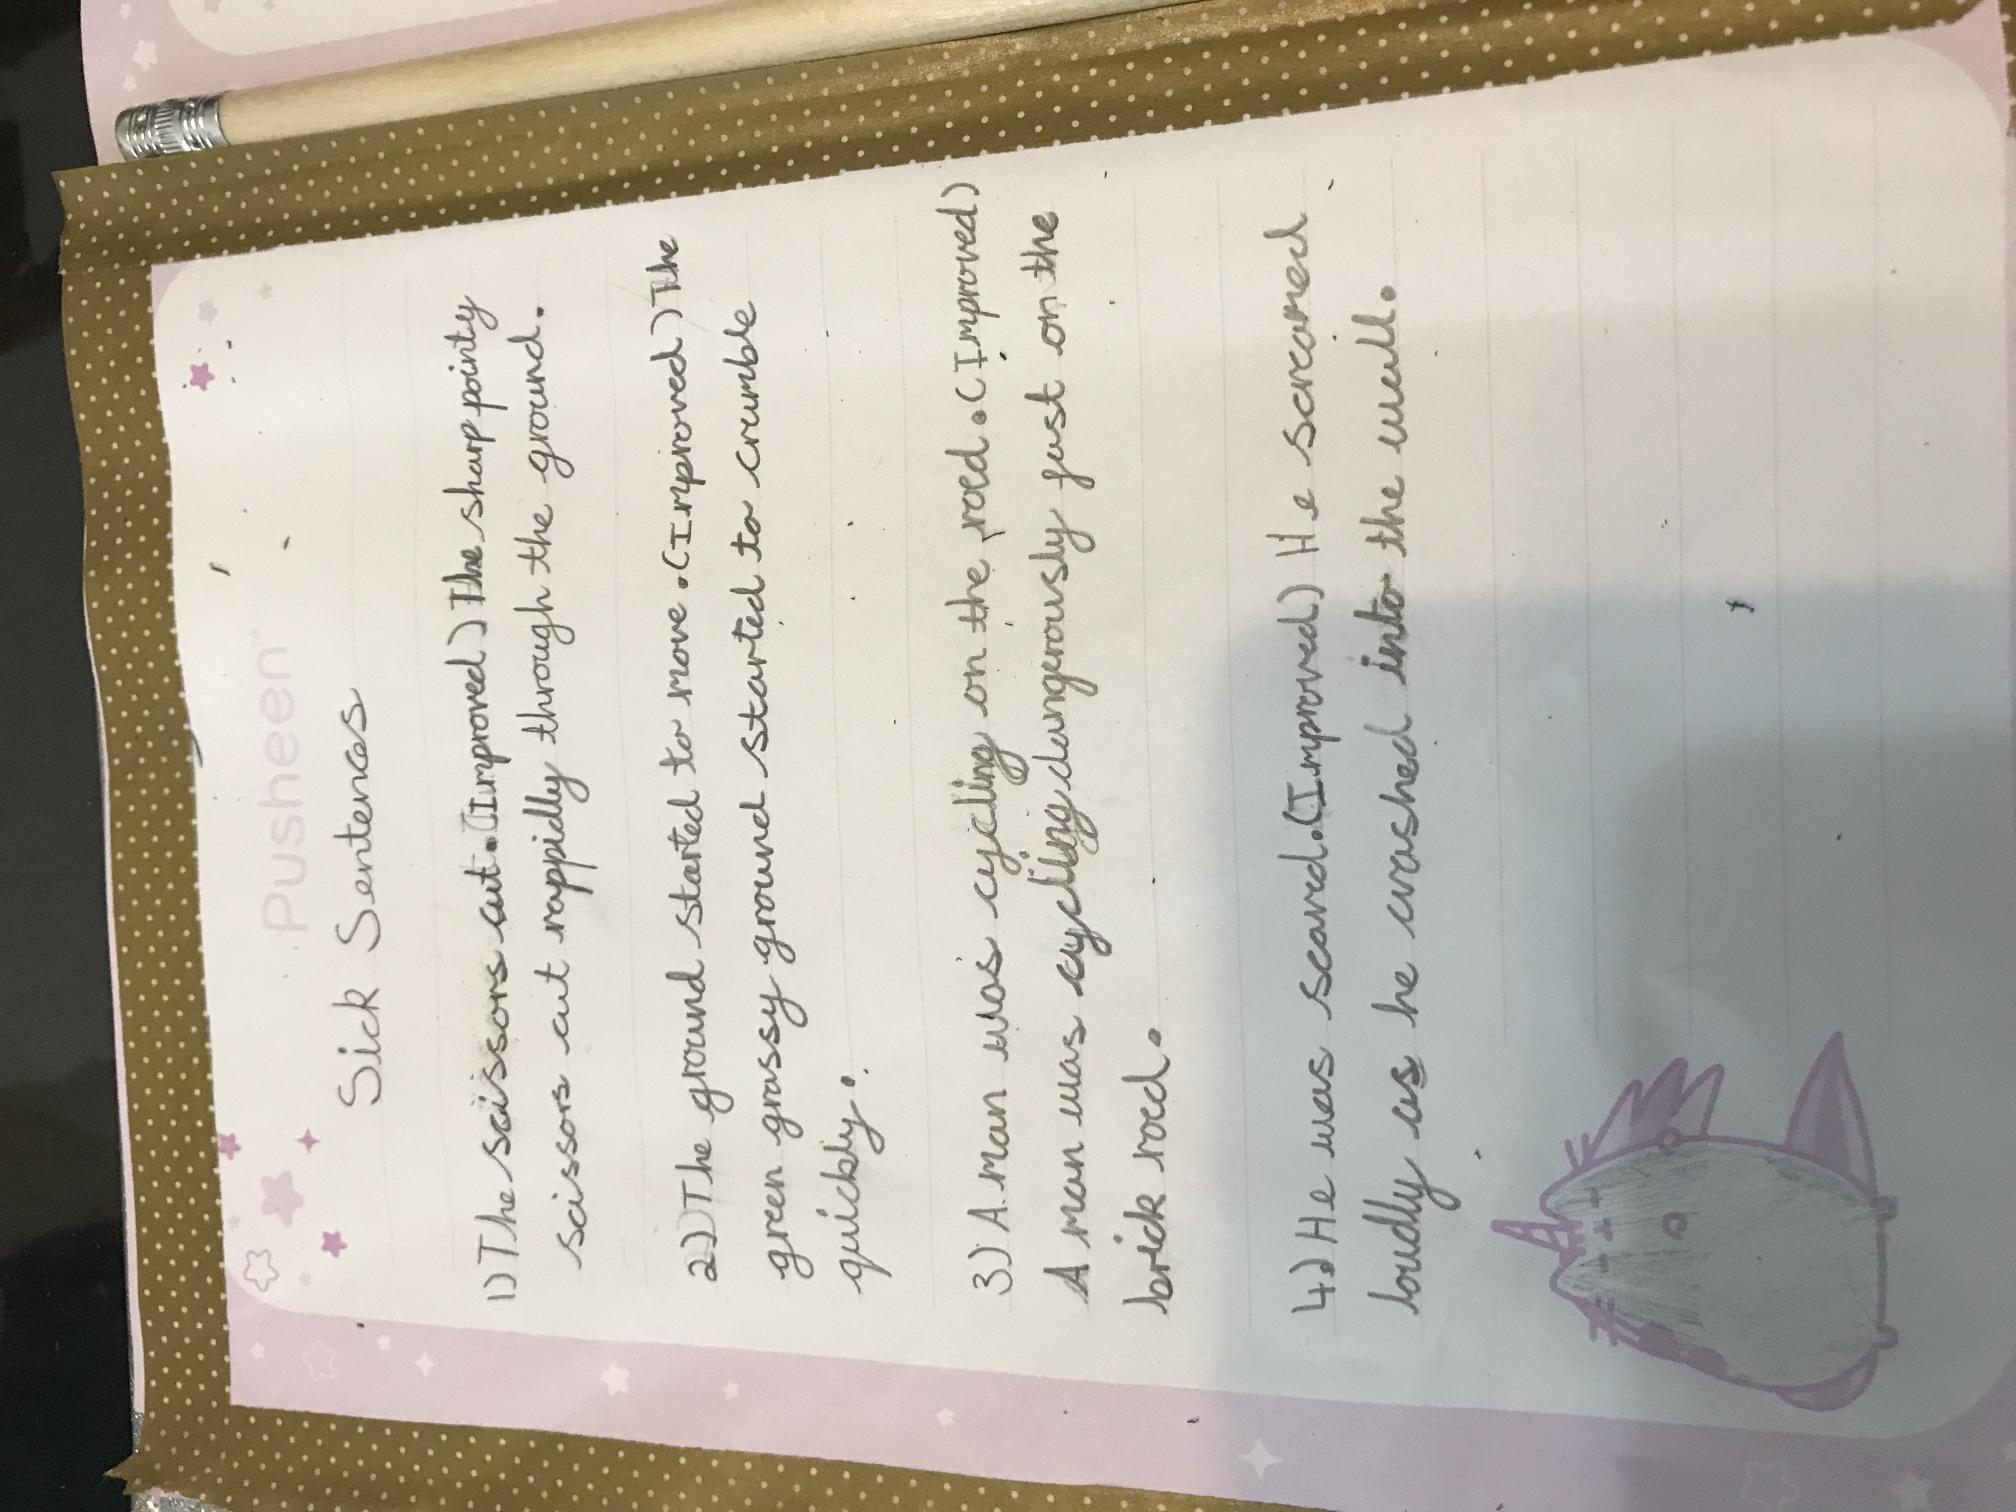 Pusheen
Sick Sentences
1) The scissors cut. (Improved) The sharp pointy
scissors cut rappidly through the ground.
2) The ground started to move. (Improved) The
green grassy ground started to crumble
quickly.
3) A man was cycling on the roed. (Improved)
A man was cycling dangerously just on the
brick roed.
4) He was scared. (Improved) He screamed
loudly as he crashed into the wall.